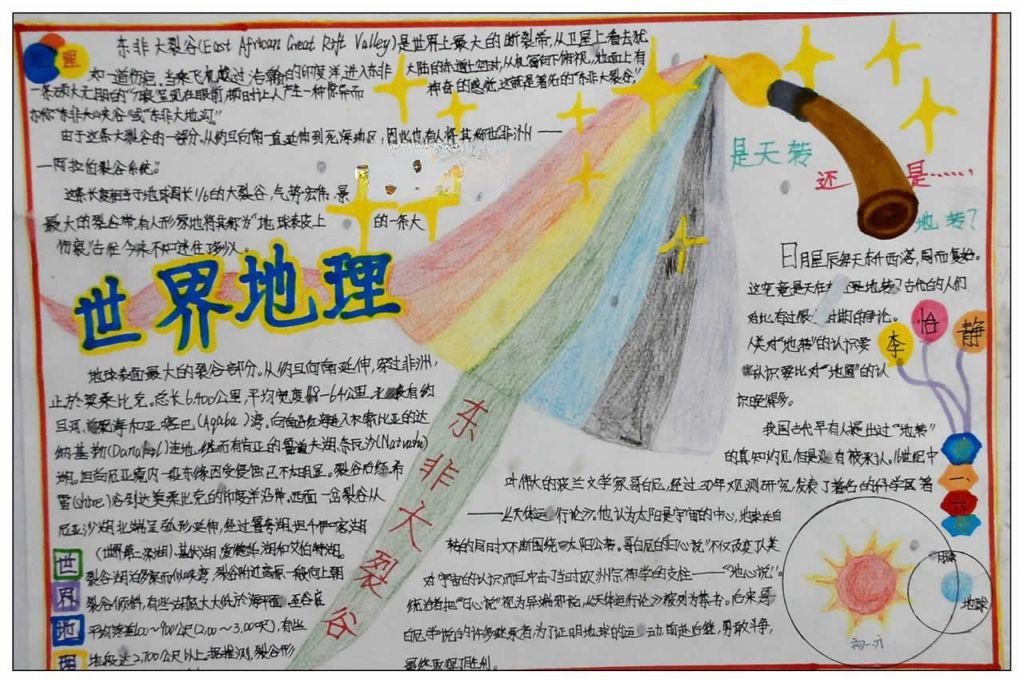 理
东非大裂谷(East African Great Rift Valley)是世界上最大的断裂带,从卫星上看去犹
如一道伤疤。当乘飞机越过浩瀚的印度洋,进入东非大陆的赤道上空时,从机窗向下俯视,地面上有
一条硕大无朋的"刀痕"呈现在眼前,顿时让人产生一种惊奇而神奇的感觉,这就是著名的"东非大裂谷",
亦称"东非大峡谷"或"东非大地沟"
由于这条大裂谷的一部分,从约旦向南一直延伸到死海地区,因此也有人将其称为非洲——
—阿拉伯裂谷系统"。
这条长度相当于地球周长1/6的大裂谷,气势宏伟,景
最大的裂谷带,有人形象地将其称为"地球表皮上的一条大
伤痕",古往今来不知迷住了多少人。
世界地理
地球表面最大的裂谷部分。从约旦向南延伸,穿过非洲,
止於莫桑比克。总长6400公里,平均宽度48~64公里,北段有约
旦河、死海和亚喀巴(Aqaba)湾,向南
纳基勒(Danakil)洼地,继而有肯亚的鲁道夫湖、奈瓦沙(Naivasha)
湖。坦尚尼亚境内一段东缘因受侵蚀已不如明显。裂谷后经希
雷(Shire)谷到达莫桑比克的印度洋沿岸。西面一岔裂谷从
尼亚沙湖北端呈弧形延伸,经过
(世界第一深湖)、基伏湖、爱德华湖和艾伯特湖。
裂谷湖泊多深而似峡湾,裂谷附近高原一般向上朝
裂谷倾斜,有些
平均落差600~900公尺(2,000~3,000尺),有些
地段达2,700公尺以上。据推测,裂谷形
世
界
地
理
东非大裂谷
是天转
还是……
地转?
日月星辰每天东升西落,周而复始。
这究竟是天在转还是地转?古代的人们
对此有过很长时期的争论。
人类对"地转"的认识要
认识要比对"地圆"的认
识晚得多。
李
怡
静
我国古代早有人提出过"地转"
的真知灼见,但是没有被承认。16世纪中
叶伟大的波兰天文学家哥白尼,经过30年观测研究,发表了著名的科学巨著
——《天体运行论》,他认为太阳是宇宙的中心,地球在自
转的同时又不断围绕太阳公转。哥白尼的"日心说"不仅改变了人类
对宇宙的认识,而且冲击了当时欧洲宗神学的支柱——"地心说"。
统治者把"日心说"视为异端邪说,《天体运行论》被列为禁书。后来哥
白尼学说的许多继承者为了证明地球的运动前赴后继,勇敢斗争,
最终取得了胜利。
初
一
六
班
月球
地球
初一六